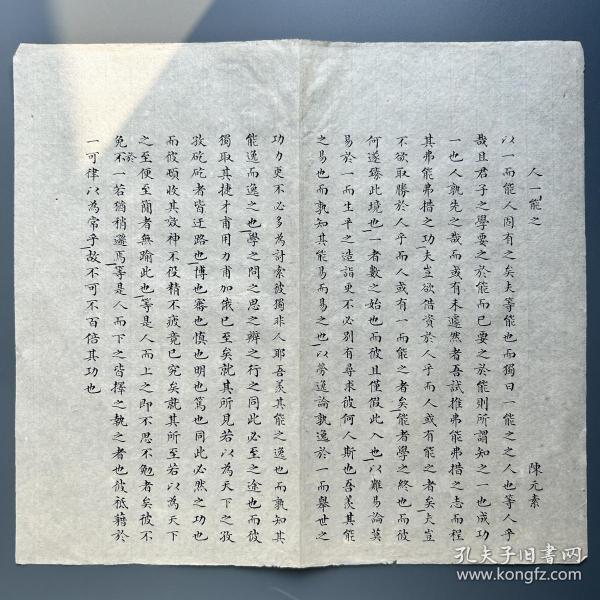 人一能之
陳元素
以一而能人固有之矣夫等能也而獨曰一能之之人也等人乎
哉且君子之學要之於能而已要之於能則所謂知之一也成功
一也人孰先之哉而或有未遽然者吾試推弗能弗措之志而程
其弗能弗措之功夫豈欲借資於人乎而人或有能之者矣夫豈
不欲取勝於人乎而人或有一而能之者矣能者學之終也而彼
何遂臻此境也一者數之始也而彼且僅假此入也以難易論莫
易於一而生平之造詣更不必別有尋求彼何人斯也吾羨其能
之易也而孰知其能易而易之也以勞逸論孰逸於一而舉世之
功力更不必多為討索彼獨非人耶吾羨其能之逸也而孰知其
能逸而逸之也學之問之思之辨之行之同此必至之途也而彼
獨取其捷才甫用力甫加俄已至矣就其所見若以為天下之孜
孜矻矻者皆迂路也博也審也慎也明也篤也同此必然之功也
而彼頓收其效神不役精不疲竟已究矣就其所至若以為天下
之至便至簡者無踰此也等是人而上之即不思不勉者矣彼不
免於不一若猶稍遜焉等是人而下之皆擇之執之者也彼祗藉於
一可律以為常乎故不可不百倍其功也
孔夫子旧書网
www.kongfz.com